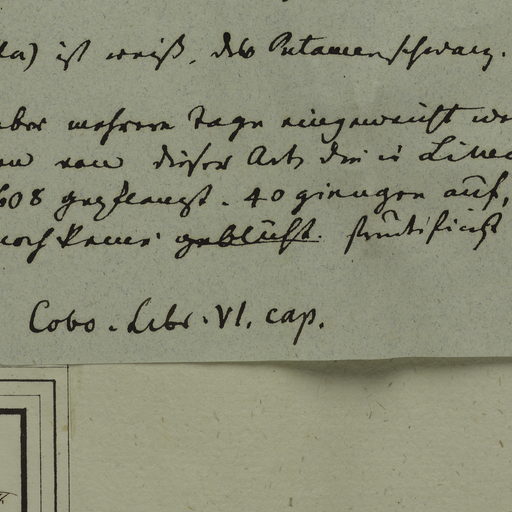 ist weiß, das Putamen schwarz.
aber mehrere Tage eingeweicht
von dieser Art, die
608 gepflanzt. 40 giengen auf,
noch keine geblüht. fructificirt
Cobo. Libr. VI. cap.